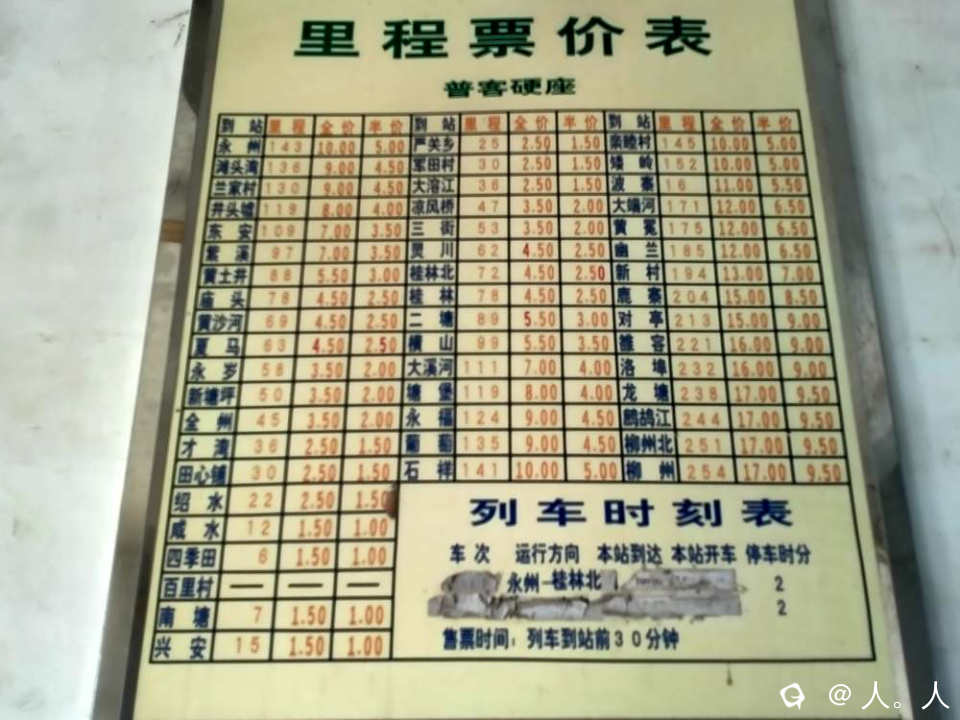 里程票价表
普客硬座
到站 里程 全价 半价 到站 里程 全价 半价 到站 里程 全价 半价
永州 143 10.00 5.00 严关乡 25 2.50 1.50 亲睦村 145 10.00 5.00
滩头湾 136 9.00 4.50 军田村 30 2.50 1.50 矮岭 152 10.00 5.00
兰家村 130 9.00 4.50 大溶江 36 2.50 1.50 波寨 16 11.00 5.50
井头墟 119 8.00 4.00 凉风桥 47 3.50 2.00 大端河 171 12.00 6.50
东安 109 7.00 3.50 三街 53 3.50 2.00 黄冕 175 12.00 6.50
紫溪 97 7.00 3.50 灵川 62 4.50 2.50 幽兰 185 12.00 6.50
黄土井 88 5.50 3.00 桂林北 72 4.50 2.50 新村 194 13.00 7.00
庙头 78 4.50 2.50 桂林 78 4.50 2.50 鹿寨 204 15.00 8.50
黄沙河 69 4.50 2.50 二塘 89 5.50 3.00 对亭 213 15.00 9.00
夏马 63 4.50 2.50 横山 99 5.50 3.50 雒容 221 16.00 9.00
永岁 58 3.50 2.00 大溪河 111 7.00 4.00 洛埠 232 16.00 9.00
新塘坪 50 3.50 2.00 塘堡 119 8.00 4.00 龙塘 238 17.00 9.50
全州 45 3.50 2.00 永福 124 9.00 4.50 鹧鸪江 244 17.00 9.50
才湾 36 2.50 1.50 葡萄 135 9.00 4.50 柳州北 251 17.00 9.50
田心铺 30 2.50 1.50 石祥 141 10.00 5.00 柳州 254 17.00 9.50
绍水 22 2.50 1.50
咸水 12 1.50 1.00
四季田 6 1.50 1.00
百里村 — — —
南塘 7 1.50 1.00
兴安 15 1.50 1.00
列车时刻表
车次 运行方向 本站到达 本站开车 停车时分
永州-桂林北 2
2
售票时间：列车到站前30分钟
@人。人